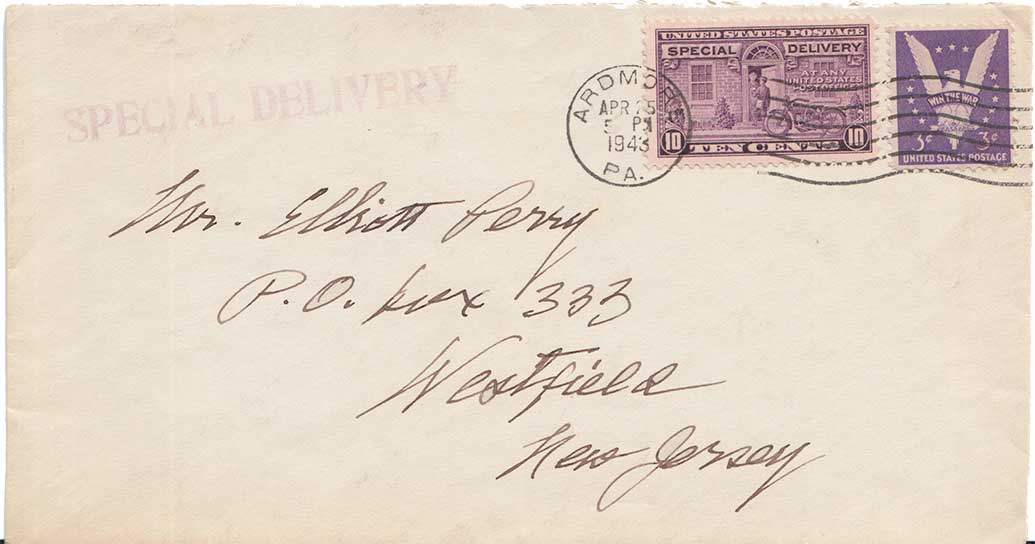 SPECIAL DELIVERY
UNITED STATES POSTAGE
SPECIAL DELIVERY
AT ANY
UNITED STATES
POST OFFICE
10 TEN CENTS 10
WIN THE WAR
3¢ 3¢
UNITED STATES POSTAGE
ARDMORE
APR 25
5 PM
1943
PA.
Mr. Elliott Perry
P.O. box 333
Westfield
New Jersey